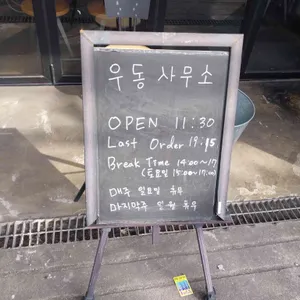 우동 사무소
OPEN 11:30
Last Order 19:15
Break Time 14:00~17
(토요일 15:00~17:00)
매주 일요일 휴무
마지막주 월요일 휴무